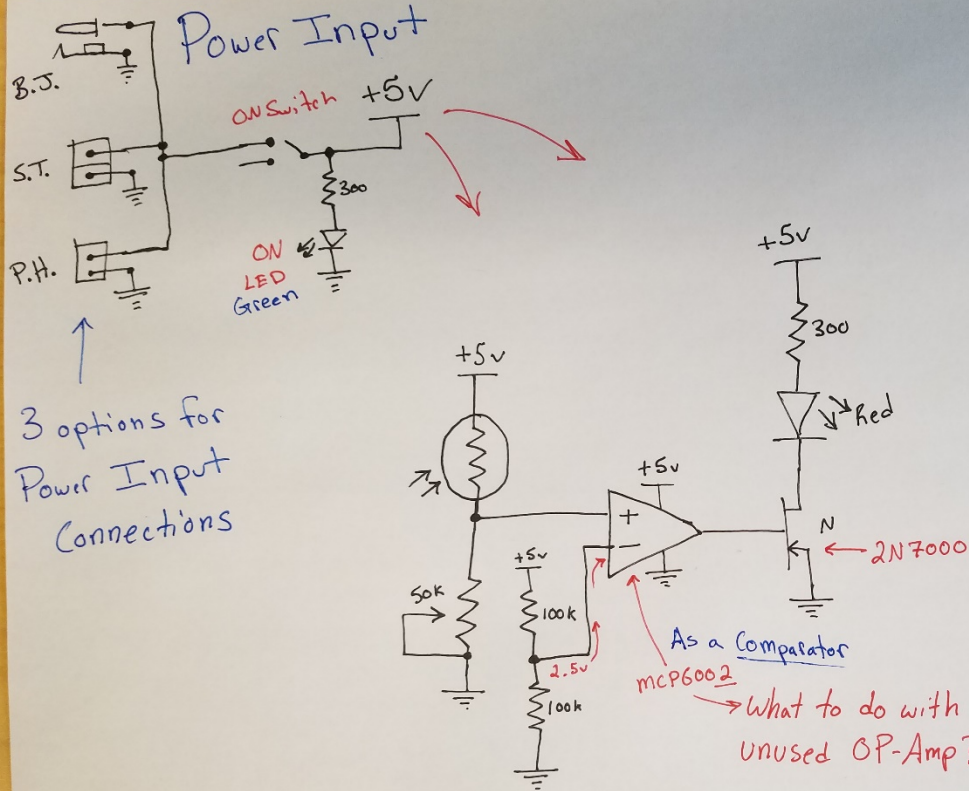 Power Input
B.J.
S.T.
P.H.
ON Switch
+5v
300
ON
LED
Green
3 options for
Power Input
Connections
+5v
50k
+5v
100k
2.5v
100k
+5v
+
−
As a Comparator
MCP6002
What to do with
unused OP-Amp?
+5v
300
Red
N
2N7000